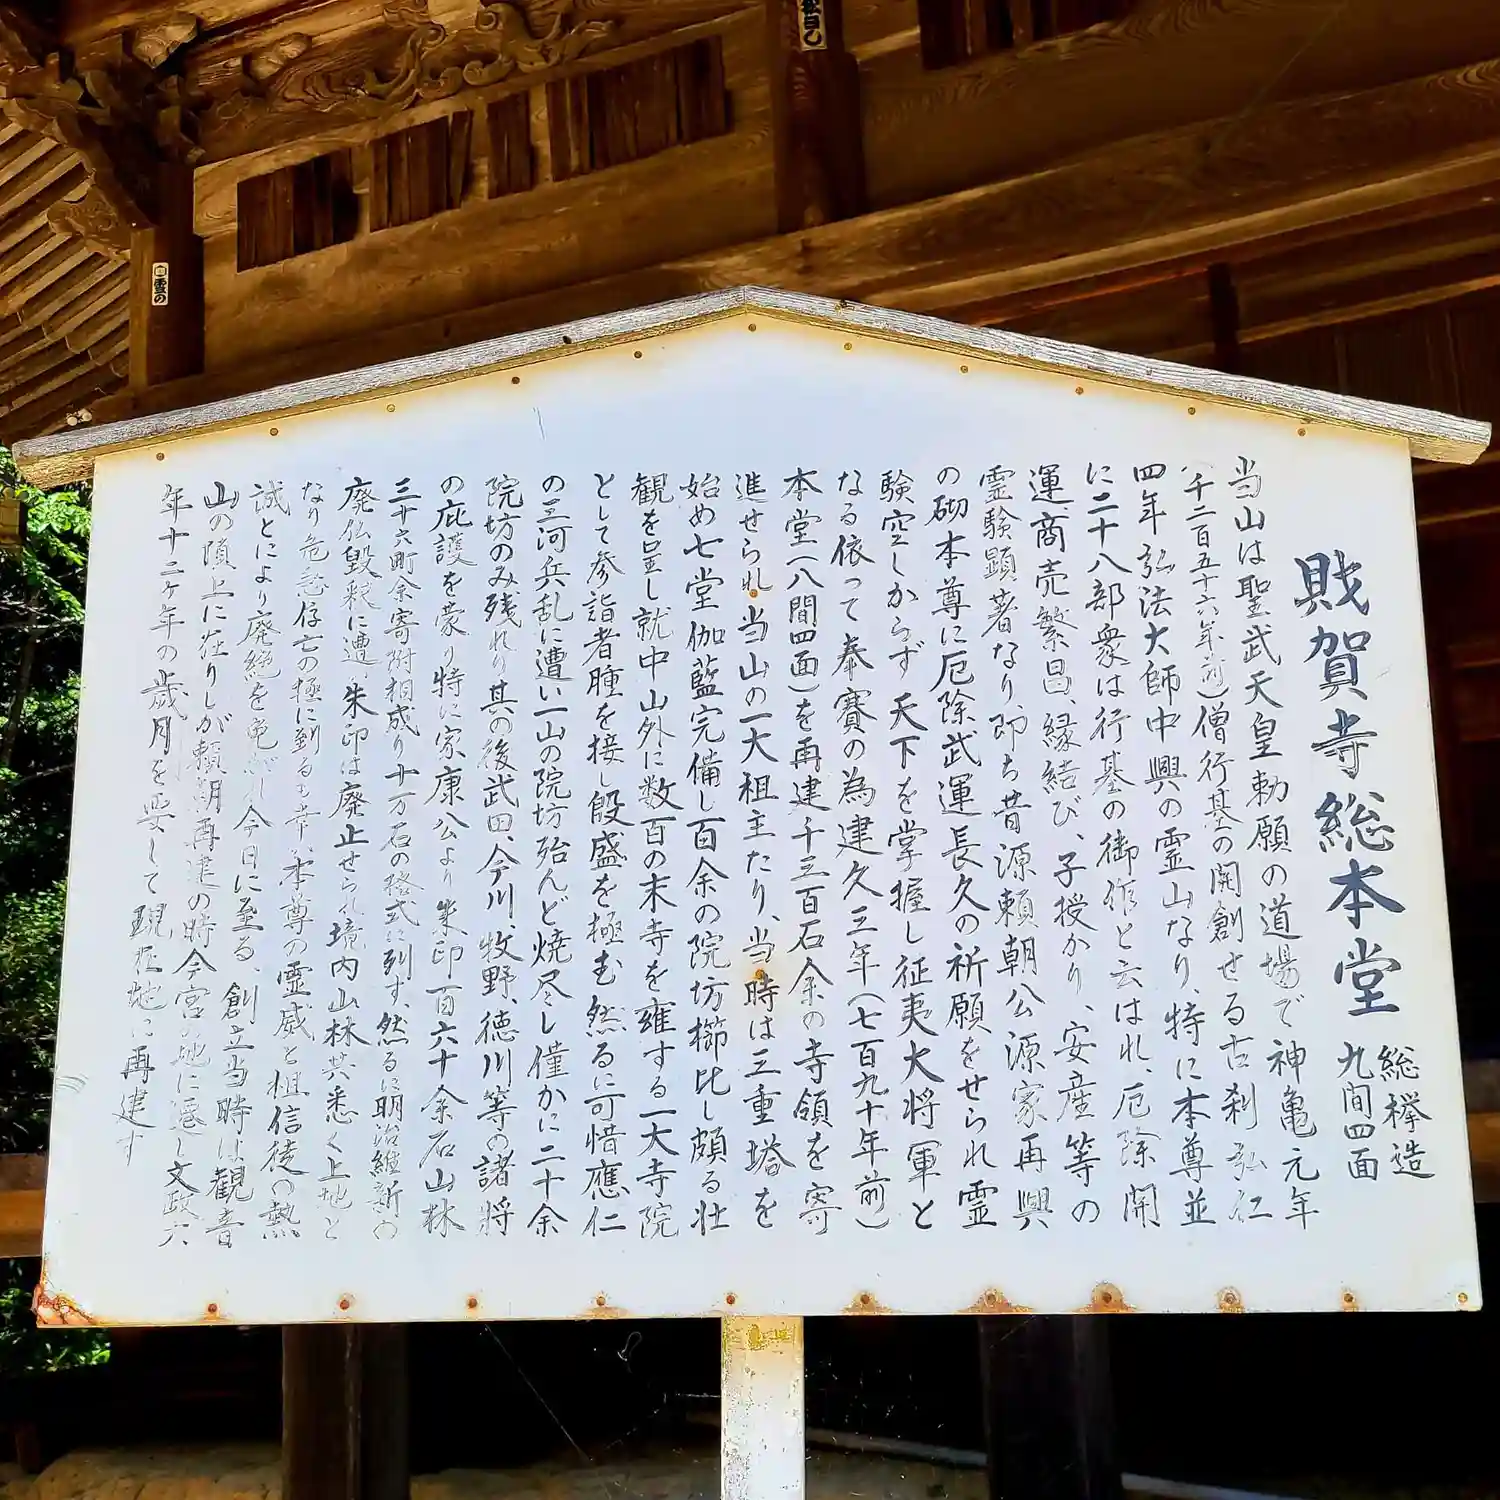 財賀寺総本堂
総欅造
九間四面
当山は聖武天皇勅願の道場で神亀元年
(千二百五十六年前)僧行基の開創せる古刹弘仁
四年弘法大師中興の霊山なり、特に本尊並
に二十八部衆は行基の御作と云はれ、厄除開
運、商売繁昌、縁結び、子授かり、安産等の
霊験顕著なり、即ち昔源頼朝公源家再興
の砌本尊に厄除武運長久の祈願をせられ霊
験空しからず天下を掌握し征夷大将軍と
なる依って奉賽の為建久三年(七百九十年前)
本堂(八間四面)を再建千三百石余の寺領を寄
進せられ当山の一大祖主たり、当時は三重塔を
始め七堂伽藍完備し百余の院坊櫛比し頗る壮
観を呈し就中山外に数百の末寺を雍する一大寺院
として参詣者踵を接し殷盛を極む然るに可惜應仁
の三河兵乱に遭い一山の院坊殆んど焼尽し僅かに二十余
院坊のみ残れり其の後武田、今川、牧野、徳川等の諸将
の庇護を蒙り特に家康公より朱印百六十余石山林
三十六町余寄附相成り十万石の格式に列す、然るに明治維新の
廃仏毀釈に遭、朱印は廃止せられ境内山林共悉く上地と
なり危急存亡の極に到るも幸、本尊の霊威と祖信徒の熱
誠とにより廃絶を免がれ今日に至る、創立当時は観音
山の頂上に在りしが頼朝再建の時今宮の地に遷し文政六
年十二ヶ年の歳月を要して現在地に再建す